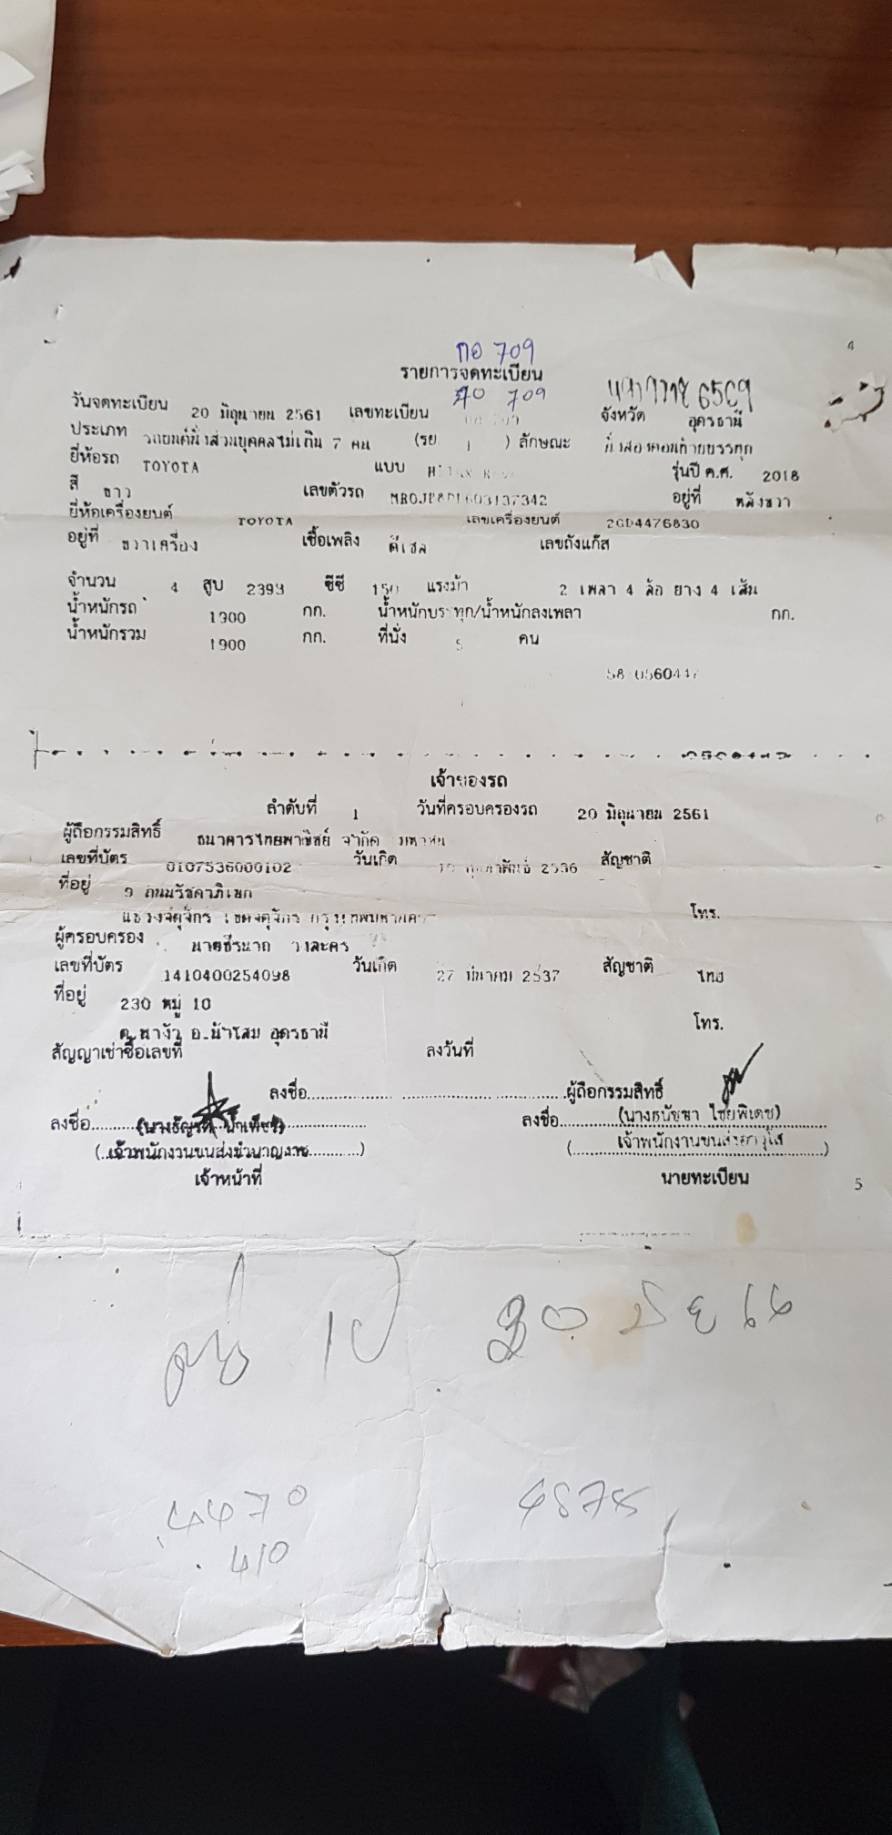 กอ 709
รายการจดทะเบียน
วันจดทะเบียน 20 มิถุนายน 2561 เลขทะเบียน 709 จังหวัด อุดรธานี
ประเภท รถยนต์นั่งส่วนบุคคลไม่เกิน 7 คน (รย 1 ) ลักษณะ
ยี่ห้อรถ TOYOTA แบบ รุ่นปี ค.ศ. 2018
สี ขาว เลขตัวรถ อยู่ที่ หลังขวา
ยี่ห้อเครื่องยนต์ TOYOTA เลขเครื่องยนต์ 2GD4476830
อยู่ที่ ขวาเครื่อง เชื้อเพลิง ดีเซล เลขถังแก๊ส
จำนวน 4 สูบ 2393 ซีซี 150 แรงม้า 2 เพลา 4 ล้อ ยาง 4 เส้น
น้ำหนักรถ 1900 กก. น้ำหนักบรรทุก/น้ำหนักลงเพลา กก.
น้ำหนักรวม 1900 กก. ที่นั่ง 5 คน
เจ้าของรถ
ลำดับที่ 1 วันที่ครอบครองรถ 20 มิถุนายน 2561
ผู้ถือกรรมสิทธิ์ ธนาคารไทยพาณิชย์ จำกัด มหาชน
เลขที่บัตร 0107536000102 วันเกิด กุมภาพันธ์ 2536 สัญชาติ
ที่อยู่ 9 ถนนรัชดาภิเษก
แขวงจตุจักร เขตจตุจักร กรุงเทพมหานคร โทร.
ผู้ครอบครอง
เลขที่บัตร 1410400254098 วันเกิด 27 มีนาคม 2537 สัญชาติ ไทย
ที่อยู่ 230 หมู่ 10
ต.นางัว อ.น้ำโสม อุดรธานี โทร.
สัญญาเช่าซื้อเลขที่ ลงวันที่
ลงชื่อ ผู้ถือกรรมสิทธิ์
ลงชื่อ ลงชื่อ (นางธนัชชา ไชยพิเดช)
(เจ้าพนักงานขนส่งชำนาญงาน) (เจ้าพนักงานขนส่งอาวุโส)
เจ้าหน้าที่ นายทะเบียน 5
4470
410